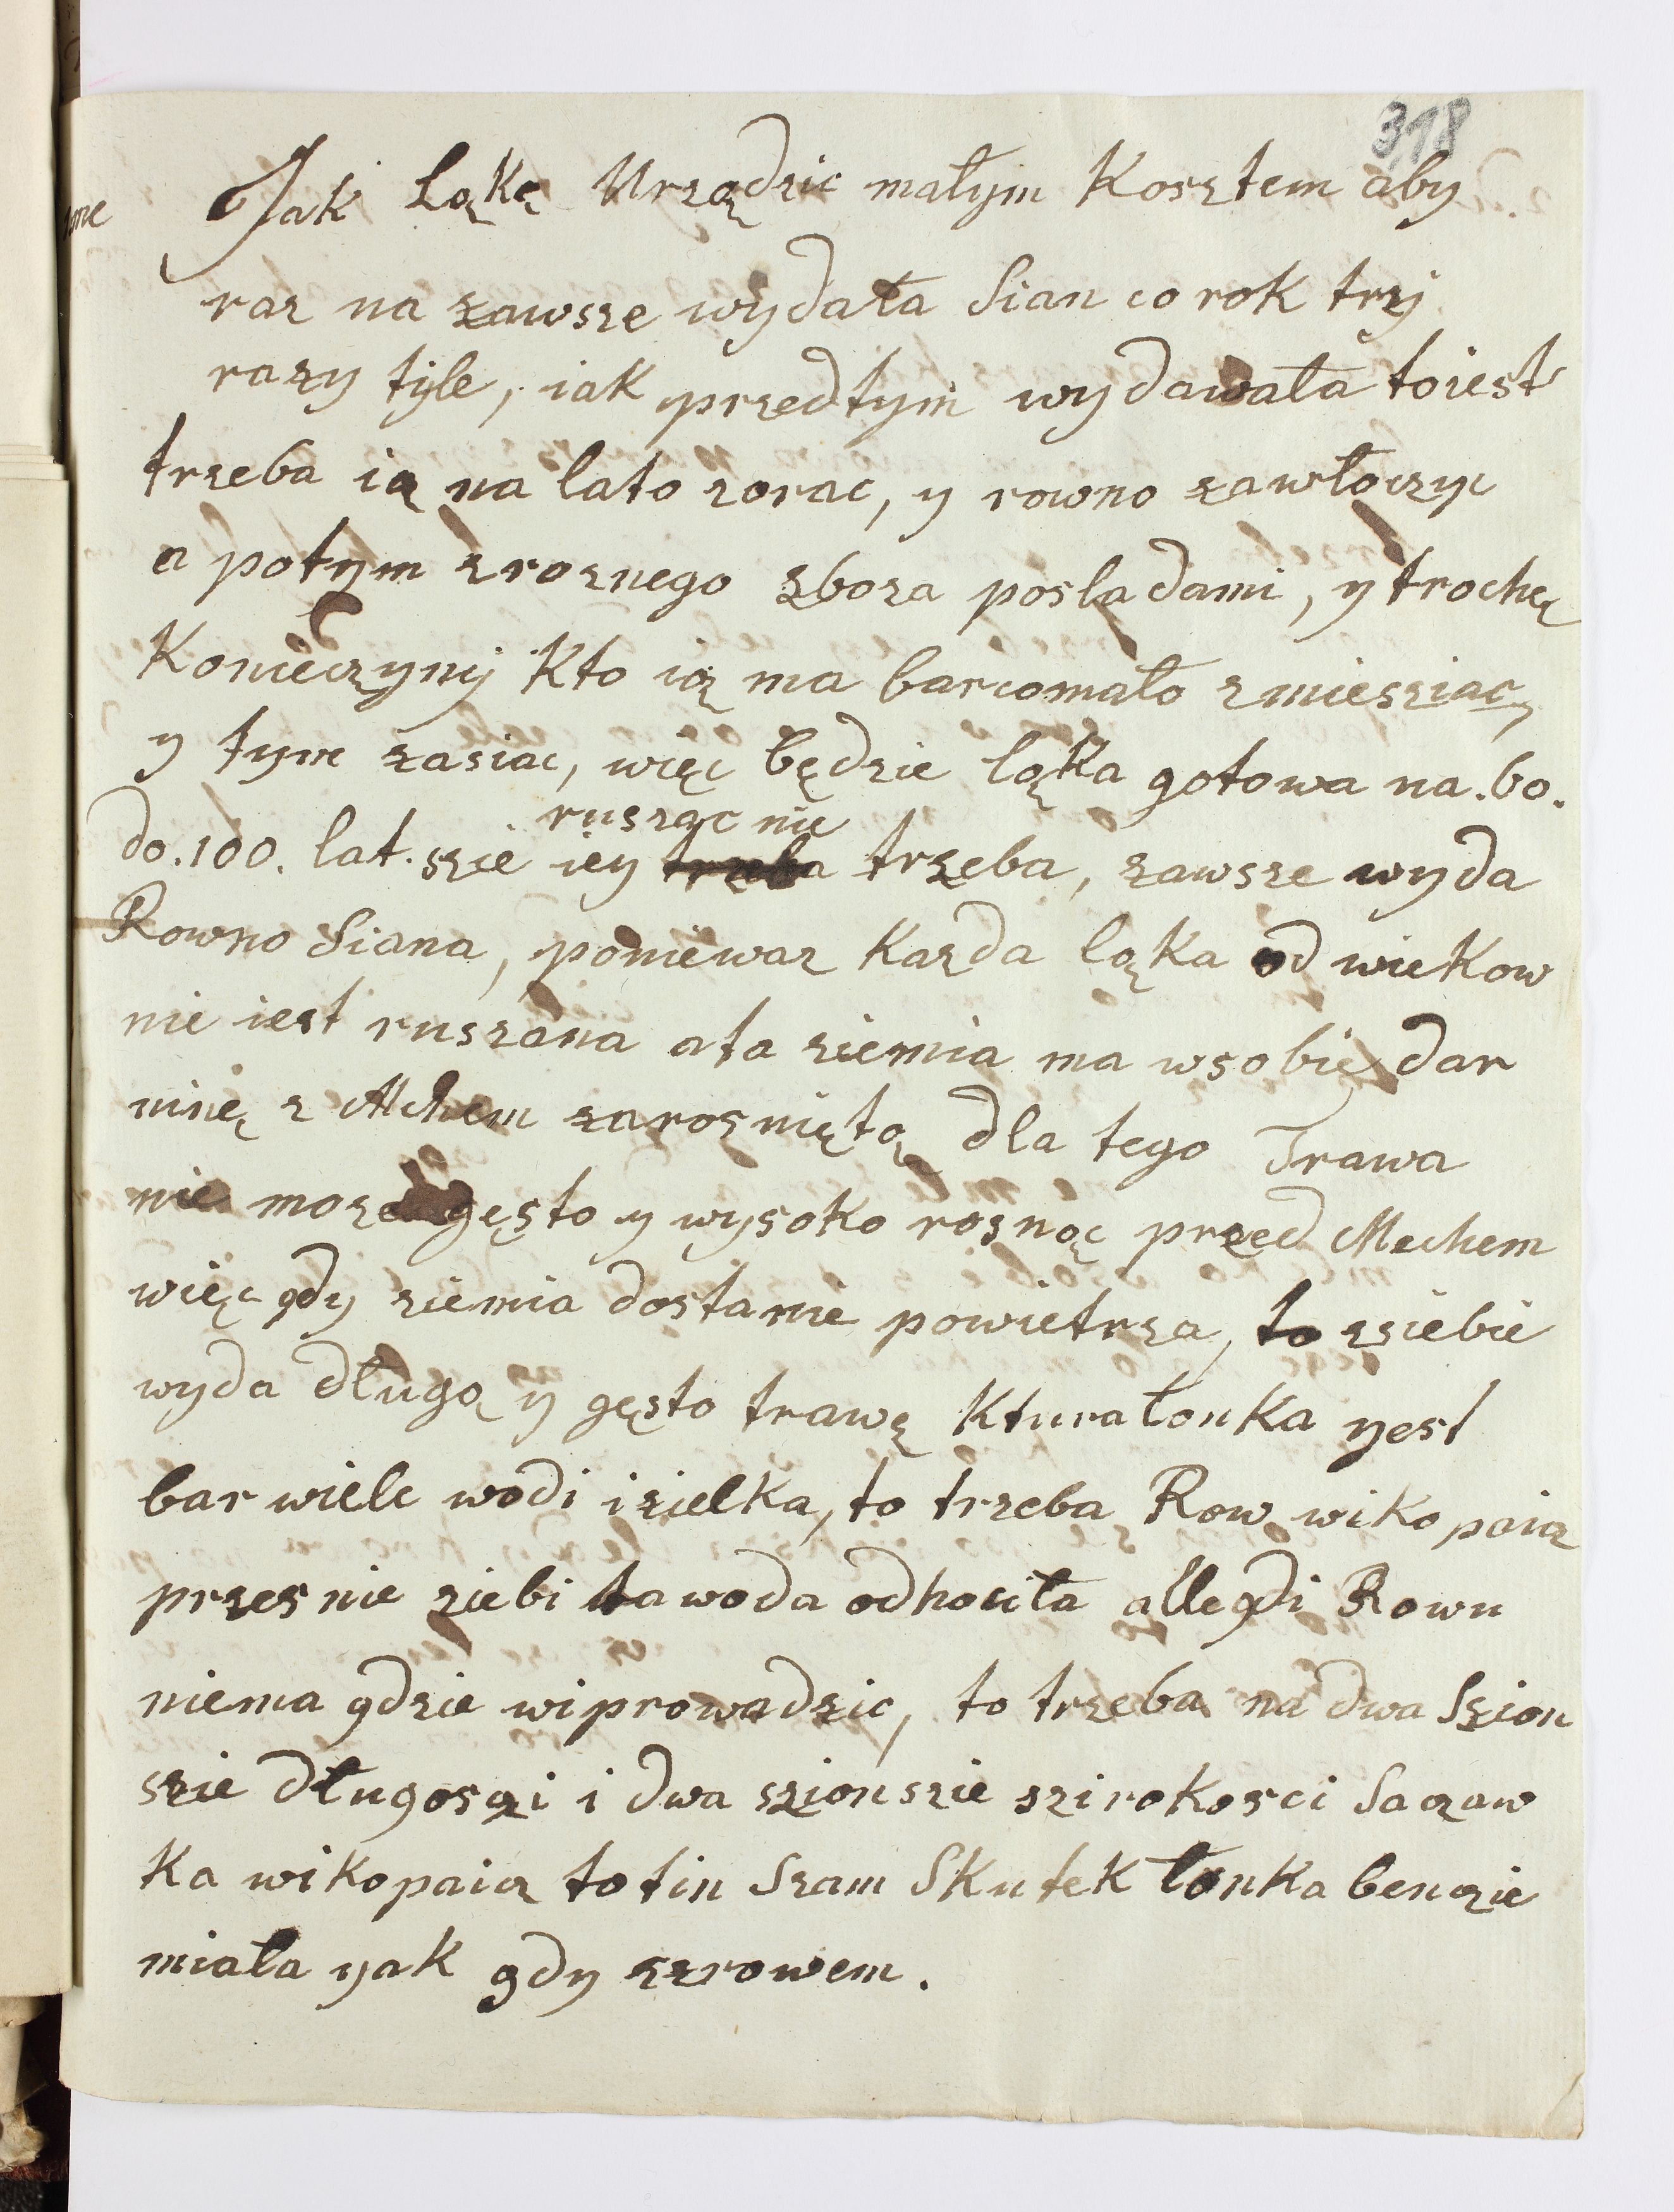 318
Jak Ląkę Urządzic małym Kosztem aby
raz na zawsze wydała Sian co rok trzy
razy tyle, iak przedtym wydawała toiest
trzeba ią na lato zorac, y rowno zawłoczyc
a potym zroznego zboza posladami, y trochę
Konieczyny Kto ią ma barcomało zmiesziac,
y tym zasiac, więc będzie ląka gotowa na. 60.
ruszac nie
do. 100. lat. szie iey trzeba trzeba, zawsze wyda
Rowno Siana, poniewaz Kazda ląka od wiekow
nie iest ruszana ata ziemia ma wsobie dar
ninę z Mchem zarosniętą dla tego Trawa
nie moze gęsto y wysoko rosnąc przed Mechem
więc gdy ziemia dostanie powietrza, to zsiebie
wyda długą y gęsto trawę Ktura łonka yest
bar wiele wodi i zielka, to trzeba Row wikopaią
przes nie ziebi ta woda odhociła alle gdi Rown
niema gdzie wiprowadzic, to trzeba na dwa Szion
szie długosci i dwa szionszie szirokosci Saczaw
Ka wikopaią to tin Szam Skutek łonka bendzie
miała yak gdy szrowem.